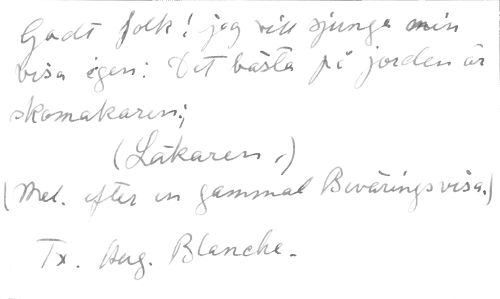 Godt folk! jag vill sjunga min
visa igen: Det bästa på jorden är
skomakaren;
(Läkaren.)
(Mel. efter en gammal Beväringsvisa.)
Tx. Aug. Blanche.